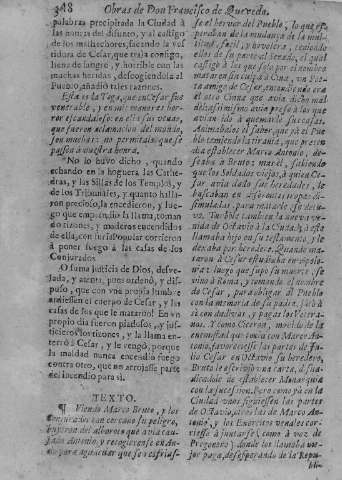 348 Obras de Don Francisco de Quevedo.
palabras precipitada la Ciudad à
las noticia del difunto, y al castigo
de los malhechores, siendo la ves-
tidora de Cesar, que traìa consigo,
llena de sangre, y horrible con las
muchas heridas, descogiendola al
Pueblo, añadiò tales razones.
Esta es la Toga, que en Cesar fue
venerable, y en mì memoria
en el sus venas,
que fueron aclamacion del mundo,
No lo huvo dicho, quando
echando en la hoguera las Cathe-
dras, y las Sillas de los Templos, y
de los Tribunales, y quanto halla-
ron precioso, la encendieron, y lue-
go que emprendiò la llama, toman-
do tizones, y maderos encendidos
de ella, con furia popular corrieron
à poner fuego à las casas de los
Conjurados
O suma justicia de Dios, desve-
lada, y atenta, pues ordenò, y dis-
puso, que con una propia lumbre
ardiessen el cuerpo de Cesar, y las
casas de los que le mataron! En un
propio dia fueron piadosos, y jus-
ticieros los tizones, y la llama en-
terrò à Cesar, y le vengò, porque
la maldad nunca encendiò fuego
contra otro, que no arrojasse parte
del incendio para sì.
TEXTO.
¶ Viendo Marco Bruto, y los
Conjurados tan cercano su peligro,
huyeron del alboroto que avia cau-
sado Antonio, y recogieronse en An-
cio para aguardar que se resfrias-
se el hervor del Pueblo, lo que
de la mudança de la mul-
titud, facil, y novelera, teniendo
ellos de su parte al Senado, el qual
castigò à los que solo por el nombre
mataron sin culpa à Cina, un Poe-
ta amigo de Cesar, entendiendo era
el otro Cinna que avia dicho mal
avia preso à los que
avian ido à quemarle sus casas.
Animabalos el saber, que yà el Pue-
blo temiendo la tirania, que preten-
dia establecer Marco Antonio, de-
seaba à Bruto; mas èl, sabiendo
que los Soldados viejos, à quien Ce-
sar avia dado sus heredades, le
buscaban en
simulados, para matarle se detu-
vo. Turbòle tambien la nueva ve-
nida de Octavio à la Ciudad, à este
llamaba hijo en su testamento, y le
dexaba por heredero. Quando ma-
taron à Cesar estudiaba en Apolo-
nia; luego que supo su muerte, se
vino à Roma, y tomando el nombre
de Cesar, para obligar al Pueblo
con la memoria de su padre,
con dadivas, y pagas los Vetera-
nos. Y como Ciceron, movido de la
enemistad que tenia con Marco An-
tonio, favoreciesse las partes de Ju-
lio Cesar en Octavio su heredero,
Bruto le escriviò una carta, disua-
diendole de establecer Monarquia
con la sucession. Pero como yà en la
Ciudad unos siguiessen las partes
de Octavio, otros las de Marco Anto-
nio, y los Exercitos venales cor-
riessen à juntarse (como à voz de
Pregonero) donde los llamaba ma-
jor paga, desesperando de la Repu-
bli-